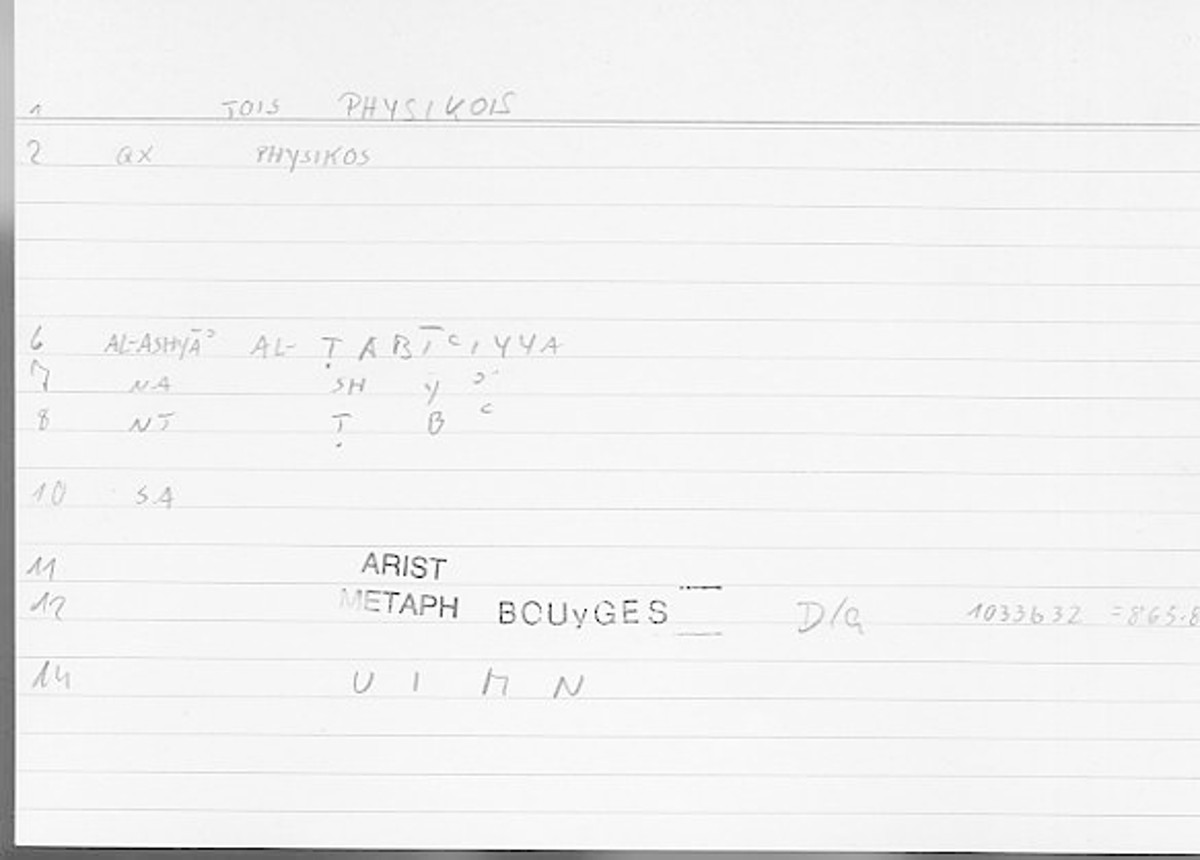 1 TOIS PHYSIKOIS
2 QX PHYSIKOS
6 AL-ASHYĀʾ AL-ṬABĪʿIYYA
7 NA SH Y ʾ
8 NT Ṭ B ʿ
10 SA
11 ARIST
12 METAPH BOUyGES D/G 1033b32 =865.8
14 U I M N